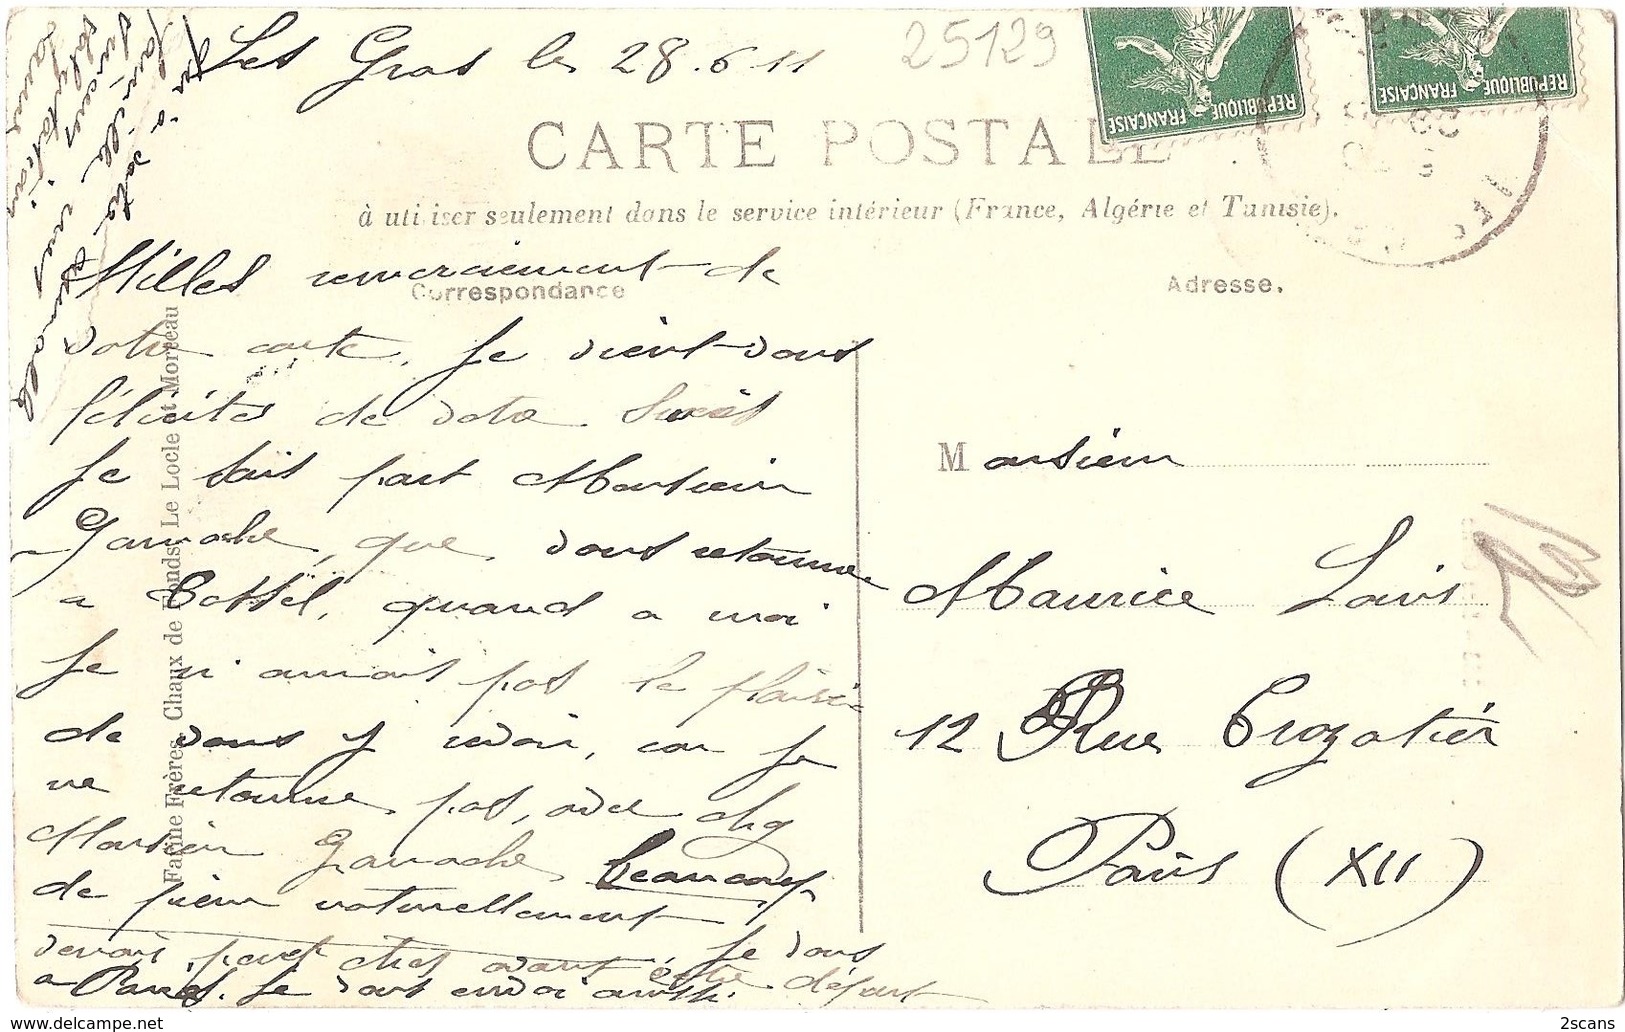 Les Gras le 28.6.11
25129
REPUBLIQUE FRANÇAISE
REPUBLIQUE FRANÇAISE
CARTE POSTALE
à utiliser seulement dans le service intérieur (France, Algérie et Tunisie).
Correspondance
Adresse.
Milles remerciement de
votre carte, Je vient vous
félicites de votre Succès
Je fait part Monsieur
Ganache, que vous retourne
a quand a moi
Je n'aurais pas le plaisir
de vous y revoir, car je
ne retourne pas, avec chez
Monsieur Ganache beaucoup
de naturellement
Je vous
avant départ
a Paris. Je vous envoi aussi
ainsi qu'à votre
famille
salutations
Farine Frères, Chaux de Fonds, Le Locle et Morteau
Monsieur
Maurice Louis
12 Rue Crozatier
Paris (XII)
2scans